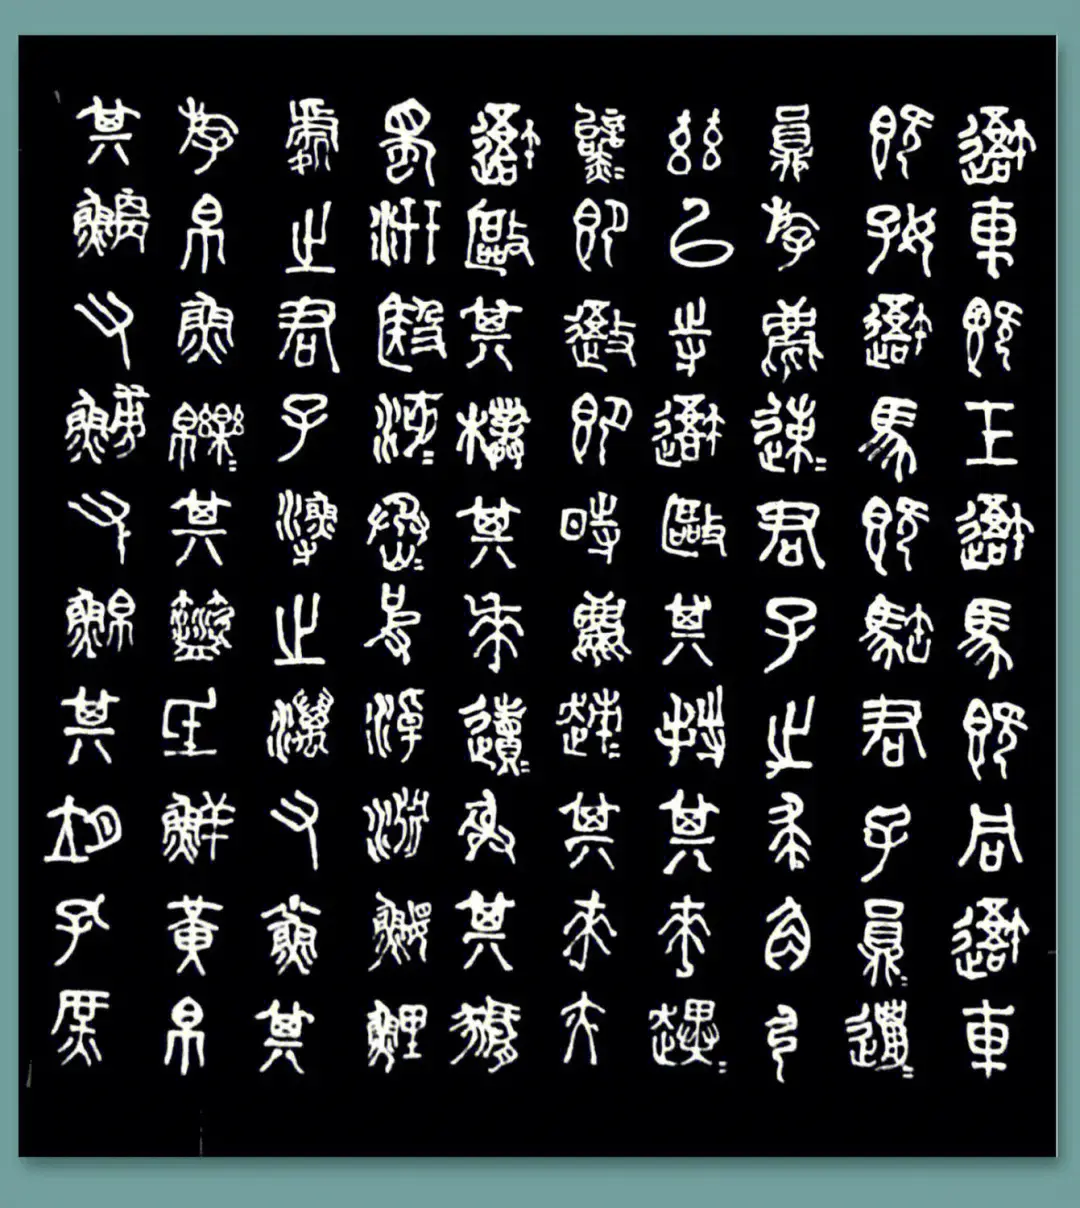 吾車既工吾馬既同吾車
既好吾馬既君子員邋
員斿麀鹿速君子之求角弓
茲以寺吾敺其特其來趩
即吾即時麀鹿趚其來
吾敺其樸其來射其
蜀汧殹沔丞皮淖淵鰋鯉
處之君子漁之澫又其
斿帛魚其氐鮮黃帛
其又鱄又鮊其孔庶